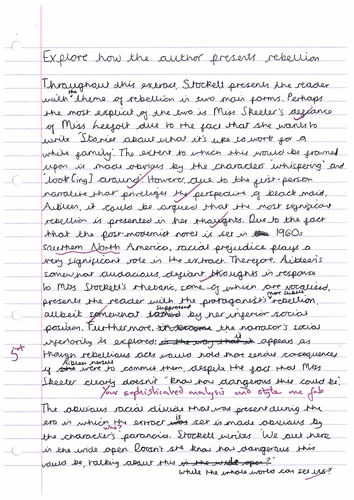 Explore how the author presents rebellion
Throughout this extract, Stockett presents the reader
with the theme of rebellion in two main forms. Perhaps
the most explicit of the two is Miss Skeeter's defiance
of Miss Leefolt due to the fact that she wants to
write 'Stories about what it's like to work for a
white family'. The extent to which this would be frowned
upon is made obvious by the character 'whispering' and
'look[ing] around'. However, due to the first-person
narrative that privileges the perspective of black maid,
Aibileen, it could be argued that the most significant
rebellion is presented in her thoughts. Due to the fact
that the post-modernist novel is set in 1960s
Southern North America, racial prejudice plays a
very significant role in the extract. Therefore, Aibileen's
somewhat audacious defiant thoughts in response
to Mrs Stockett's rhetoric, some of which are vocalised,
presents the reader with the protagonist's more subtle rebellion,
albeit somewhat suppressed by her inferior social
position. Furthermore, the narrator's social
inferiority is explored: it appears as
though rebellious acts would hold more serious consequences
5*
if Aibileen herself were to commit them, despite the fact that Miss
Skeeter clearly doesn't 'know how dangerous this could be'.
Your sophisticated analysis and style are fab
The obvious racial divide that was present during the
era in which the extract was set is made obvious by
the character's paranoia. Stockett writes 'We out here
in the wide open. Doesn't she know how dangerous this
could be, talking about this in the wide open?'
while the whole world can see us?